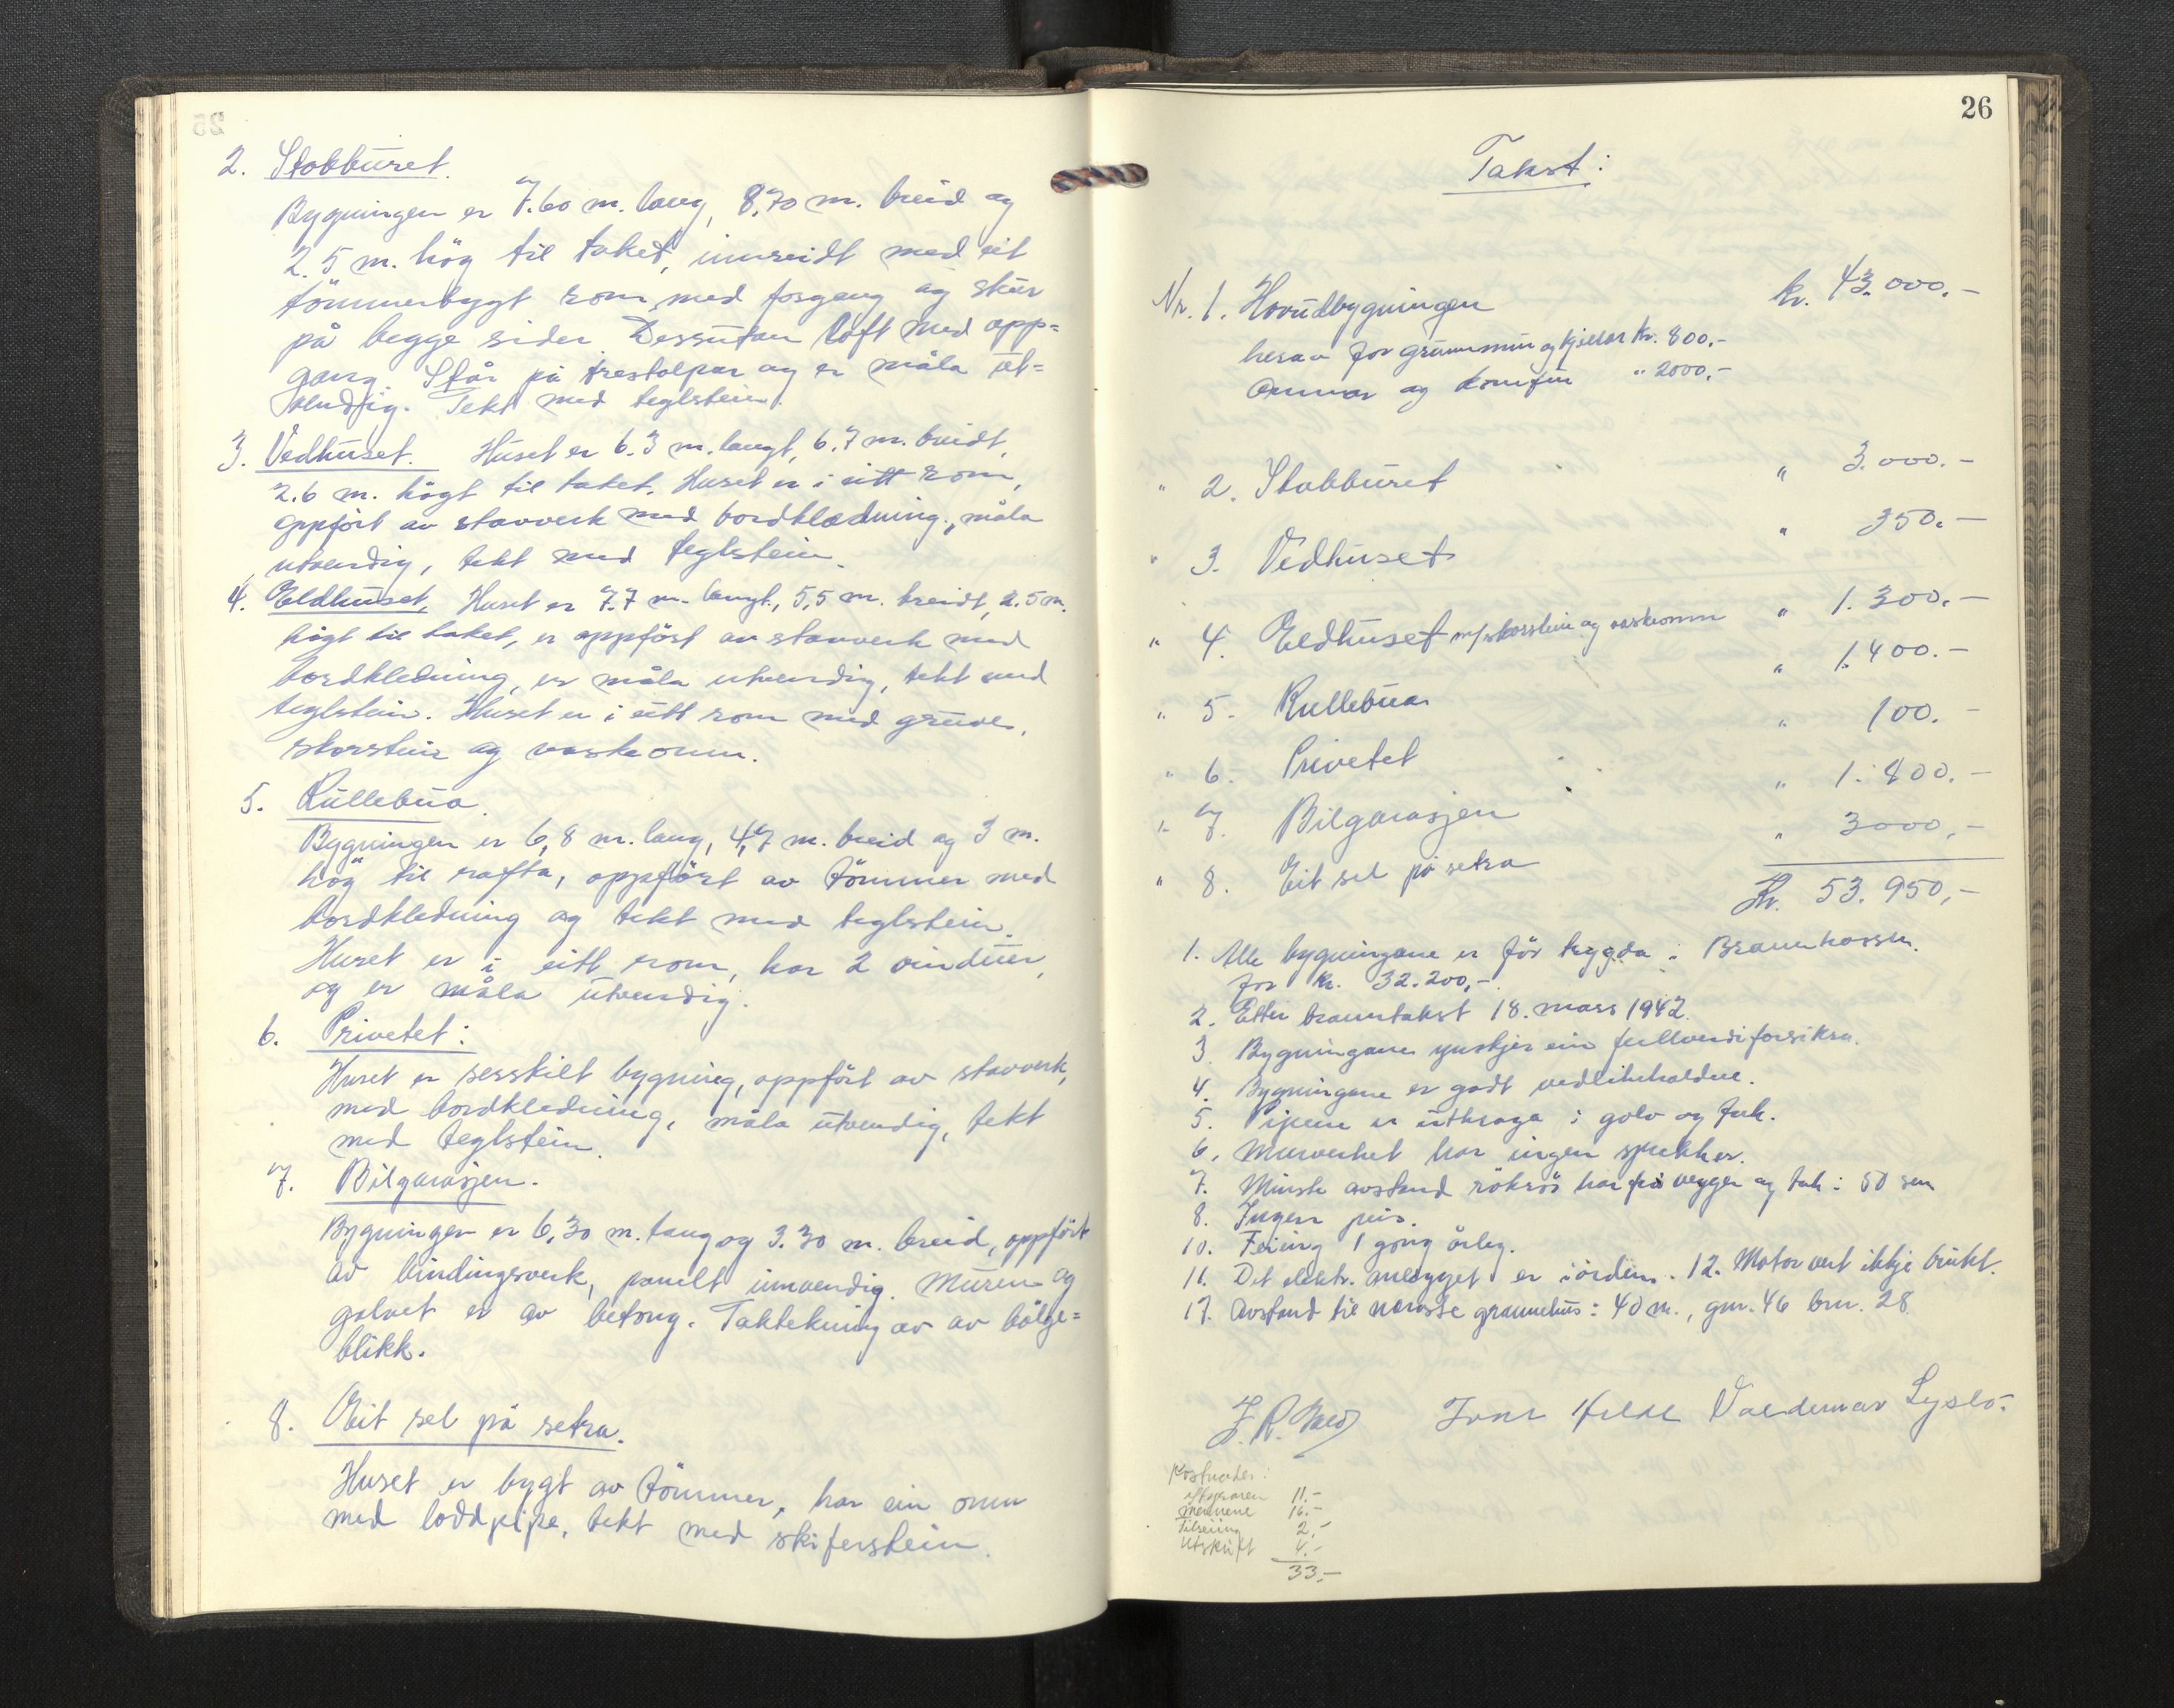 2. Stabburet.
Bygningen er 7.60 m. lang, 8,70 m. breid og
2.5 m. høg til taket, innreidt med eit
tömmerbygt rom med forgang og skur
på begge sider. Dessutan loft med opp=
gang. Står på trestolpar og er måla ut=
vendig. Tekt med teglstein.
3. Vedhuset. Huset er 6.3 m. langt, 6.7 m. breidt,
2.6 m. högt til taket. Huset er i eitt rom,
oppfört av stavverk med bordklædning, måla
utvendig, tekt med teglstein.
4. Eldhuset. Huset er 7.7 m. langt, 5,5 m. breidt, 2.5 m.
högt til taket, er oppfört av stavverk med
bordkledning, er måla utvendig, tekt med
teglstein. Huset er i eitt rom med grue,
skorstein og vaskeomn.
5. Rullebua.
Bygningen er 6,8 m. lang, 4,7 m. breid og 3 m.
hög til rafta, oppfört av tömmer med
bordkledning og tekt med teglstein.
Huset er i eitt rom, har 2 vinduer,
og er måla utvendig.
6. Privetet:
Huset er serskilt bygning, oppfört av stavverk,
med bordkledning, måla utvendig, tekt
med teglstein.
7. Bilgarasjen.
Bygningen er 6,30 m. lang og 3.30 m. breid, oppfört
av bindingsverk, panelt innvendig. Muren og
golvet er av betong. Taktekning av av bölge=
blikk.
8. Eit sel på setra.
Huset er bygt av tömmer, har ein omn
med loddpipe, tekt med skiferstein.
26
Takst:
Nr. 1. Hovudbygningen kr. 43.000.-
herav for grunnmur og kjellar kr. 800.-
Omnar og komfur " 2000.-
" 2. Stabburet " 3.000.-
" 3. Vedhuset " 350.-
" 4. Eldhuset m/skorstein og vaskomn " 1.300.-
" 5. Rullebua " 1.400.-
" 6. Privetet " 100.-
" 7. Bilgarasjen " 1.800.-
" 8. Eit sel på setra " 3000.-
Kr. 53.950,-
1. Alle bygningane er för trygda i Brannkassen
for kr. 32.200,-
2. Etter branntakst 18. mars 1942.
3. Bygningane ynskjer ein fullverdiforsikra.
4. Bygningane er godt vedlikehaldne.
5. Pipene er utkraga i golv og tak.
6. Murverket har ingen sprekker.
7. Minste avstand rökrör har frå vegger og tak: 50 sm
8. Ingen peis.
10. Feiing 1 gong årleg.
11. Det elektr. anlegget er i orden. 12. Motor vert ikkje brukt.
17. Avstand til næraste grannehus: 40 m., gnr. 46 bnr. 28
Valdemar Lyslo.
Kostnader:
11.-
mennene 16.-
Tilseiing 2,-
Utskrift 4.-
33,-